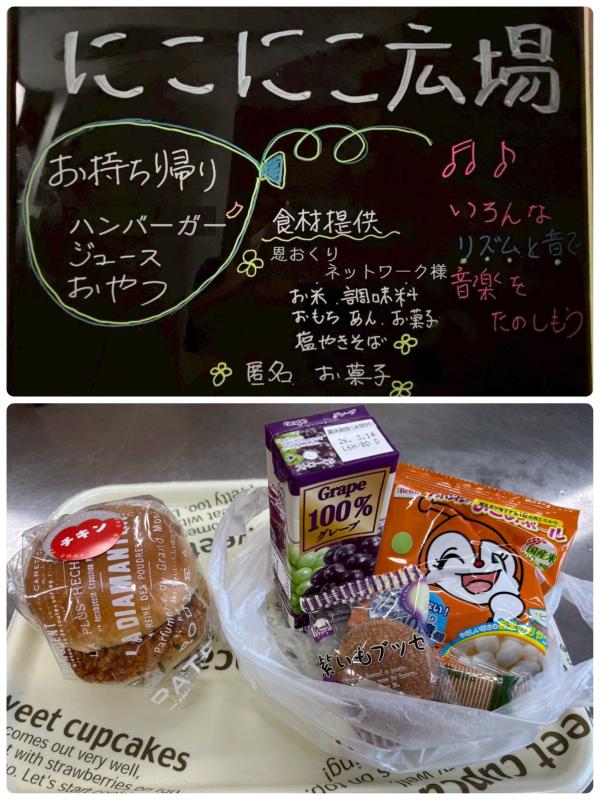 にこにこ広場
お持ち帰り
ハンバーガー
ジュース
おやつ
食材提供
恩おくり
ネットワーク様
お米 調味料
おもち あん お菓子
塩やきそば
匿名 お菓子
いろんな
リズムと音で
音楽を
たのしもう
チキン
LA DIAMANT
REINE DES POUDRES
Grape
グレープ
26.3.14
L6H/BD D
Grape
100%
グレープ
国産米
紫いもブッセ
weet cupcakes
comes out very well,
t with strawberries on
o. Let's start